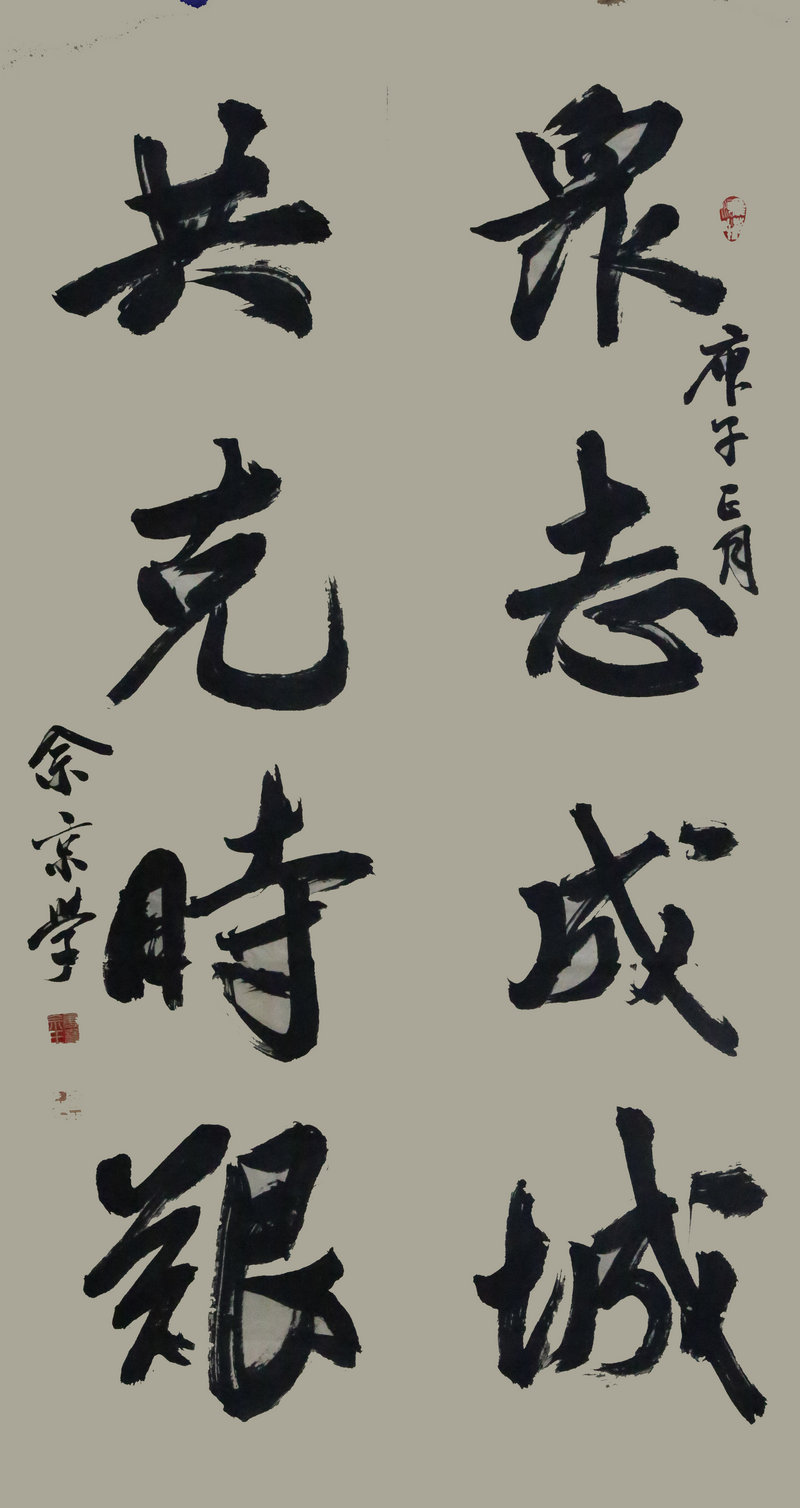 眾志成城
庚子正月
共克時艱
余宗學